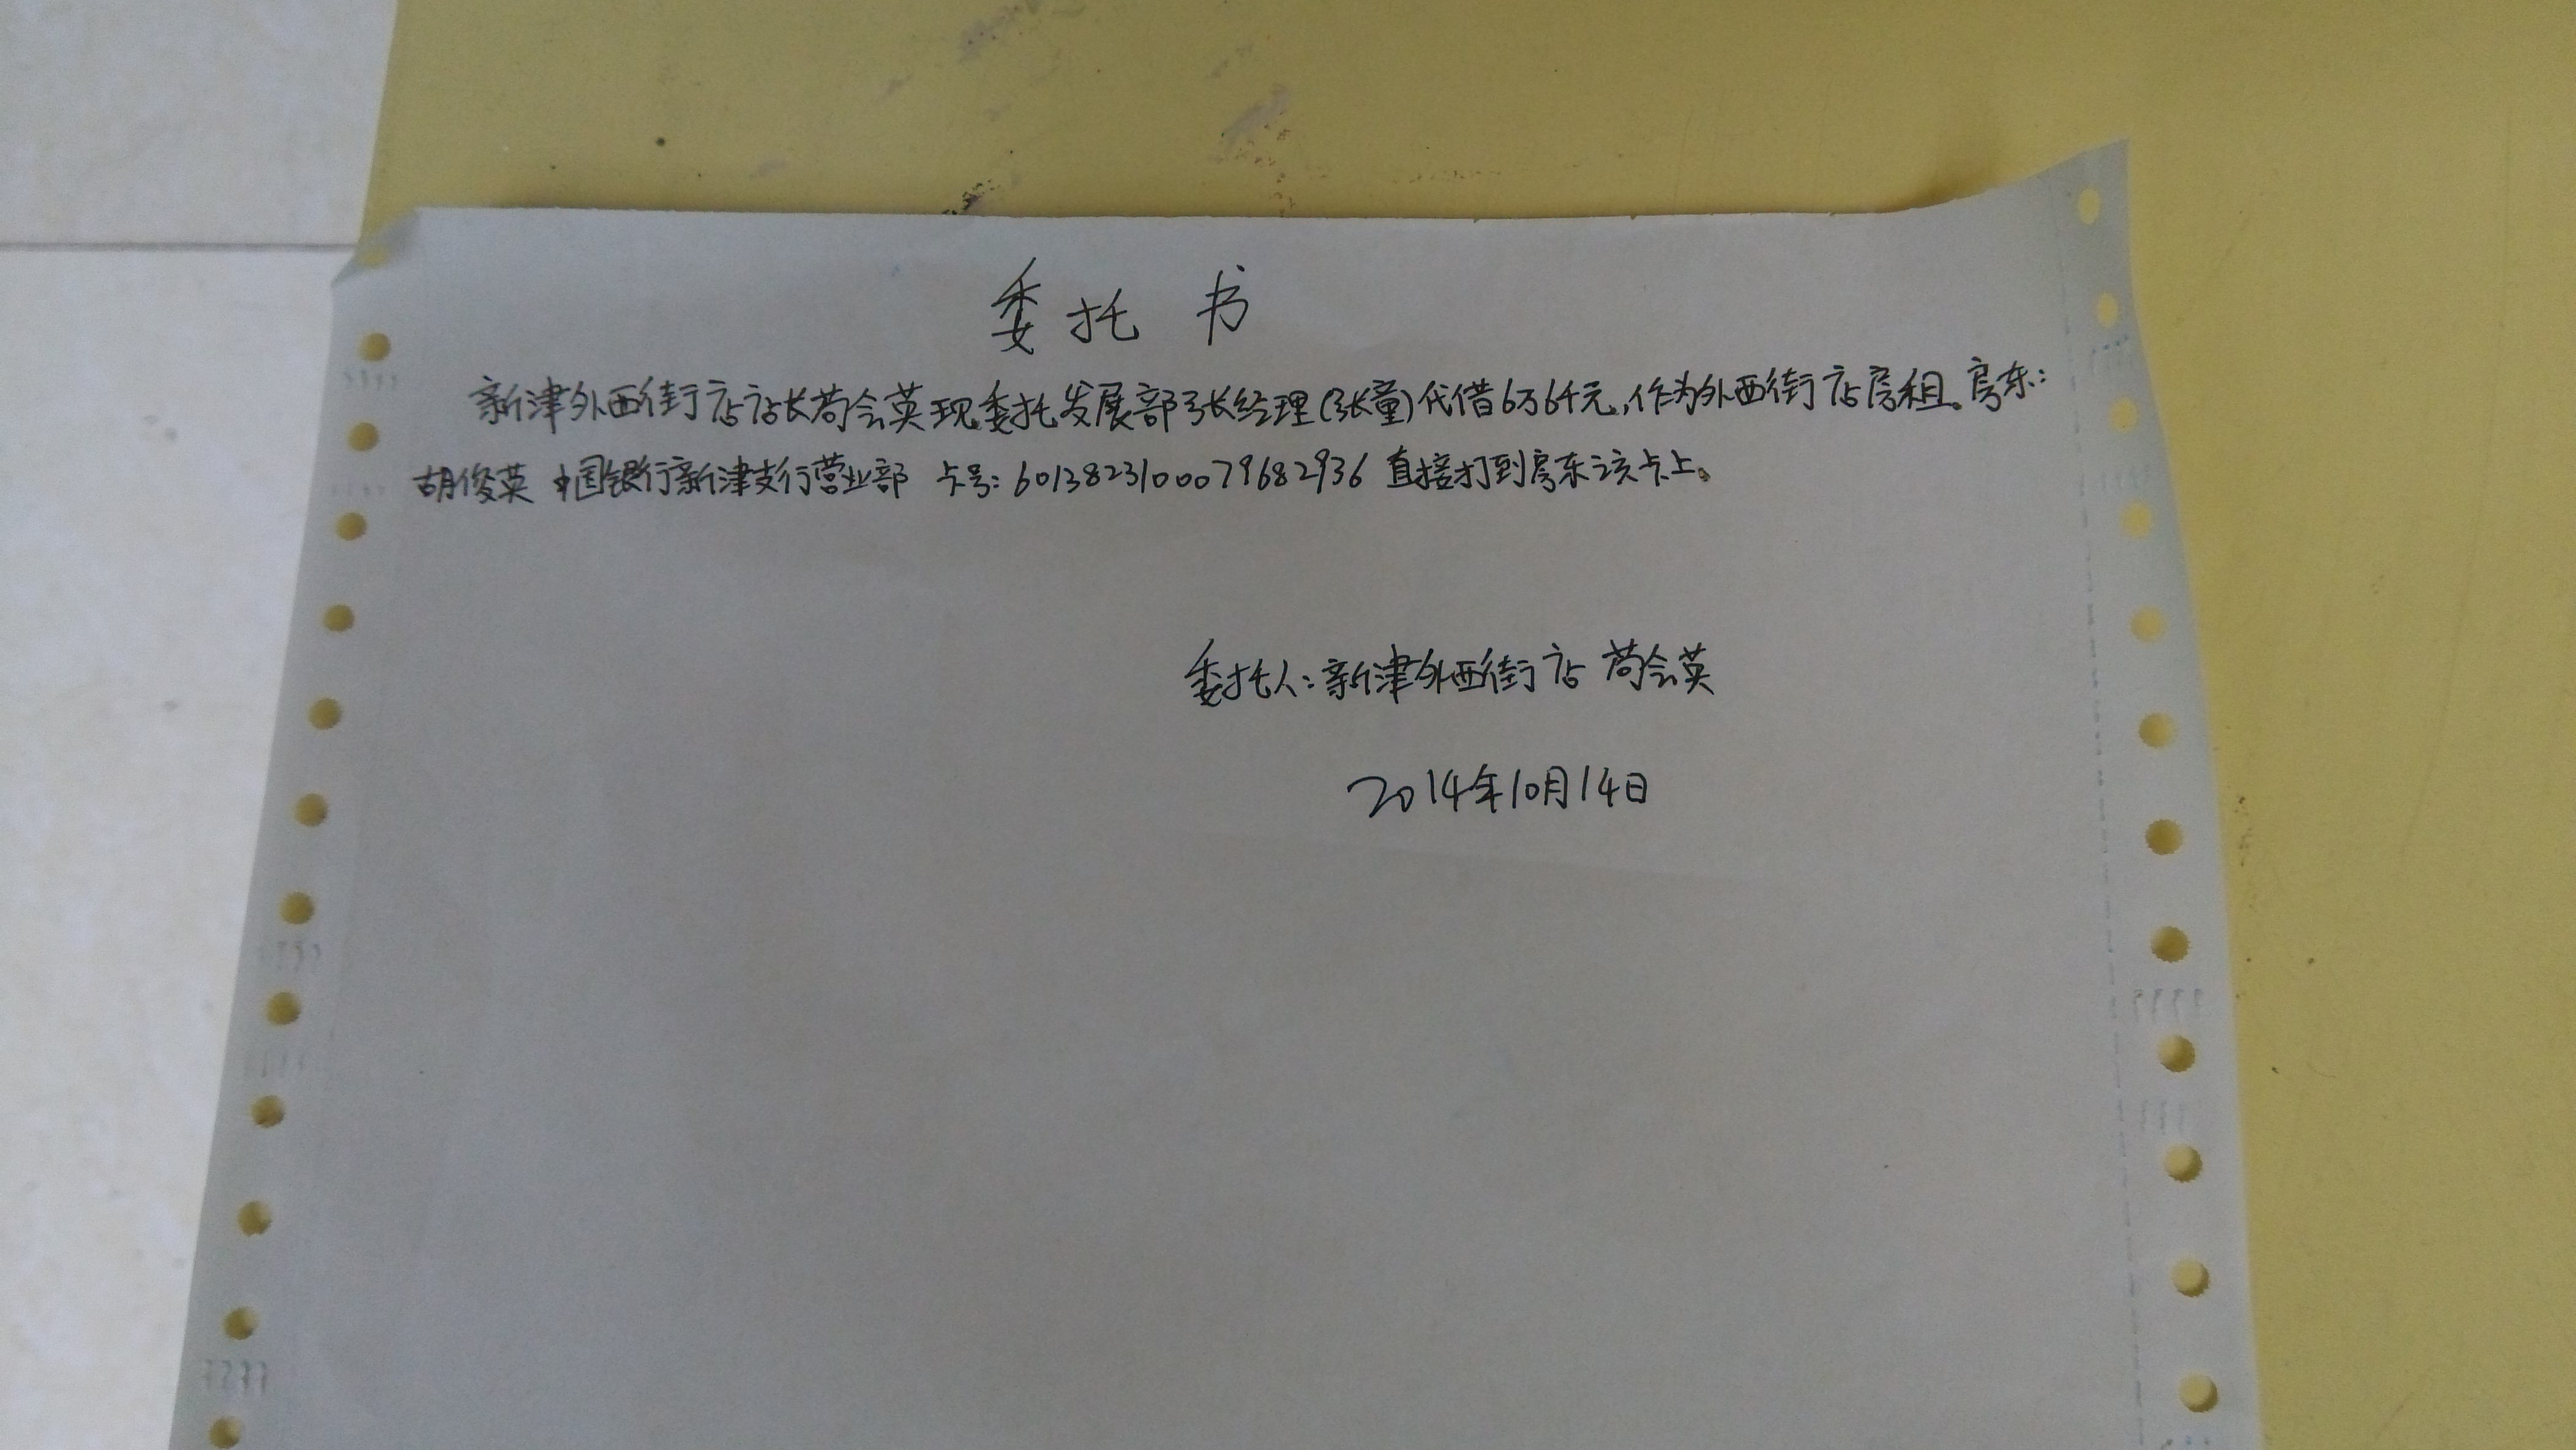 委托书
新津外西街店店长苟会英现委托发展部张经理(张童)代借6万6仟元,作为外西街店房租。房东:
胡俊英 中国银行新津支行营业部 卡号:6013823100079682936 直接打到房东该卡上。
委托人:新津外西街店 苟会英
2014年10月14日